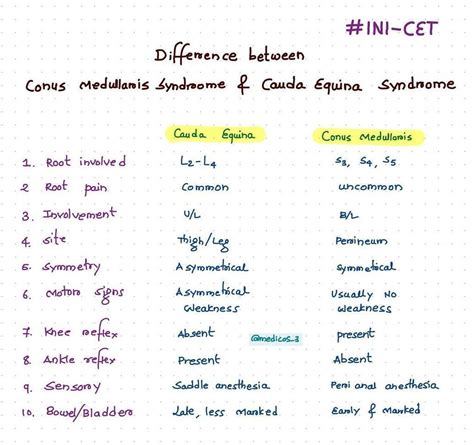 #INI-CET
Difference between
Conus Medullaris Syndrome & Cauda Equina Syndrome
Cauda Equina Conus Medullaris
1. Root involved L2-L4 S3, S4, S5
2 Root pain Common uncommon
3. Involvement U/L B/L
4. Site Thigh/Leg Perineum
5. Symmetry Asymmetrical Symmetical
6. Motor signs Asymmetrical Weakness Usually No Weakness
7. Knee reflex Absent present
@medicos_3
8. Ankle reflex Present Absent
9. Sensory Saddle anesthesia Peri anal anesthesia
10. Bowel/Bladder Late, less Marked Early & Marked